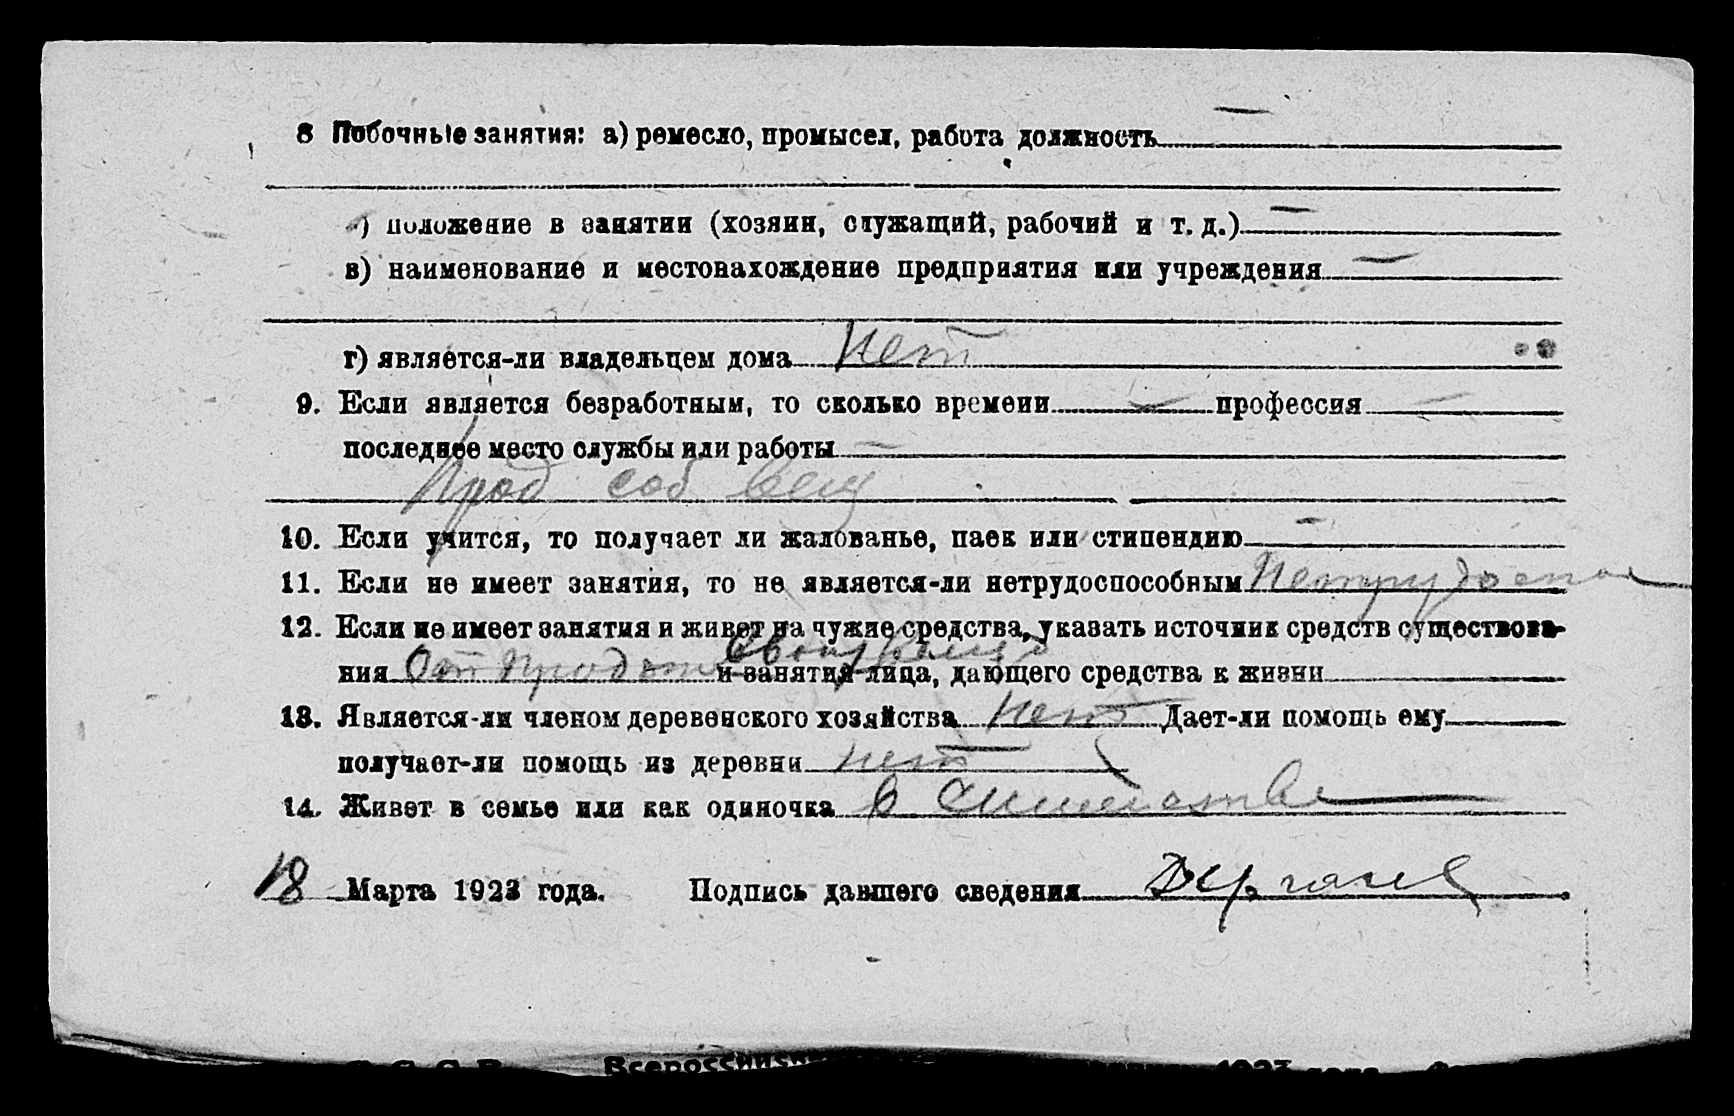 8 Побочные занятия: а) ремесло, промысел, работа должность —
) положение в занятии (хозяин, служащий, рабочий и т. д.) —
в) наименование и местонахождение предприятия или учреждения —
г) является-ли владельцем дома Нет
9. Если является безработным, то сколько времени — профессия —
последнее место службы или работы —
Прод соб вещ
10. Если учится, то получает ли жалованье, паек или стипендию —
11. Если не имеет занятия, то не является-ли нетрудоспособным Нетрудоспос
12. Если не имеет занятия и живет на чужие средства, указать источник средств существова-
ния От продажи своих вещ и занятия лица, дающего средства к жизни
13. Является-ли членом деревенского хозяйства нет Дает-ли помощь ему
получает-ли помощь из деревни нет
14. Живет в семье или как одиночка в
18 Марта 1923 года. Подпись давшего сведения
Всероссийск 1923 года